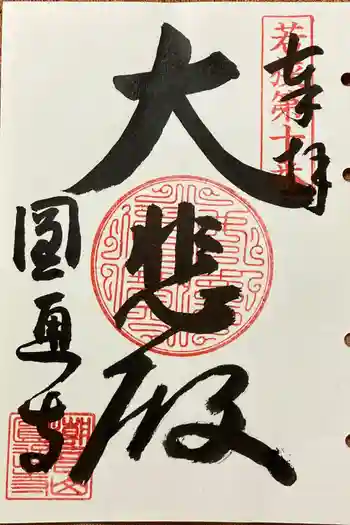 奉拝
第十番
大悲殿
圓通寺